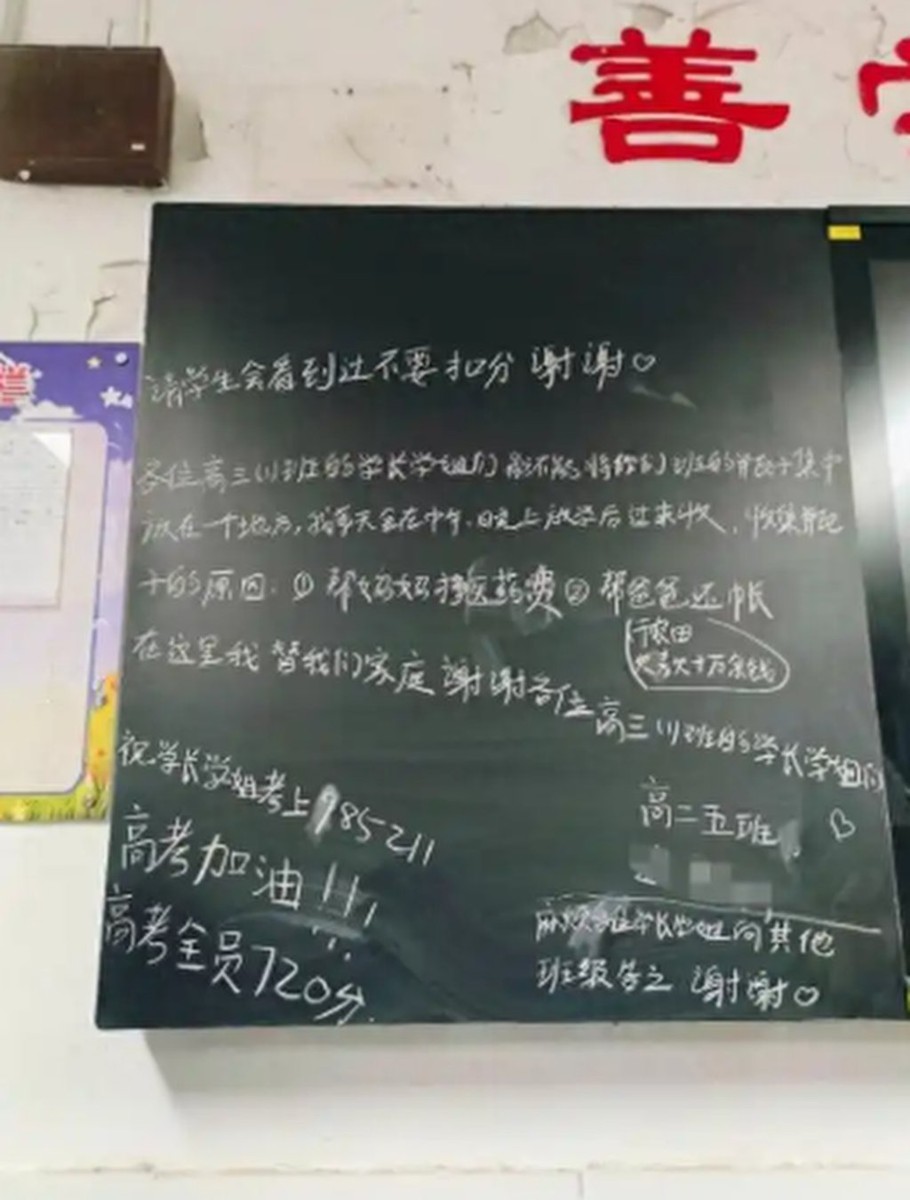 善
请学生会看到过不要扣分 谢谢♡
各位高三(1)班的学长学姐们 能不能将你们班的瓶子集中
放在一个地方,我每天会在中午、晚上放学后过来收,收集瓶
子的原因:① 帮妈妈挣医药费② 帮爸爸还帐
农田
火着火十万余钱
在这里我替我们家庭谢谢各位高三(1)班的学长学姐们
♡
祝学长学姐考上985211
高考加油!!!
高考全员720分.
高二五班
麻烦各位学长学姐向其他
班级告之 谢谢♡